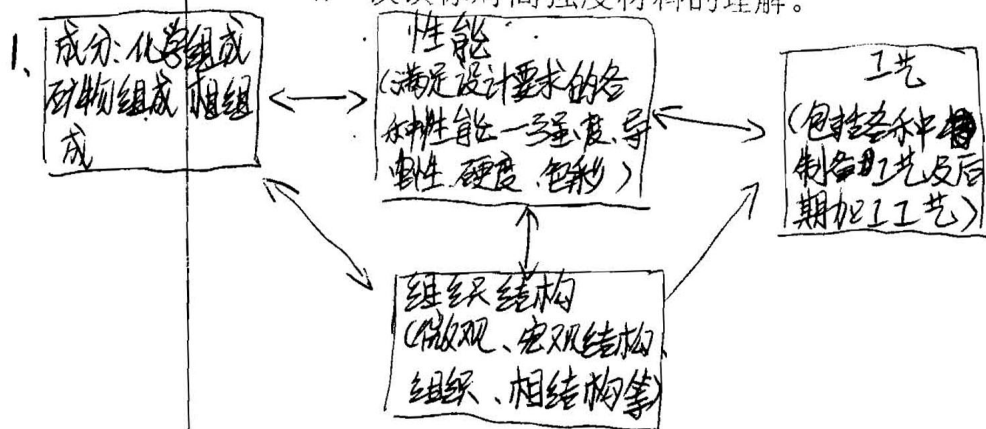 谈谈你对高强度材料的理解。
1、
成分:化学组成
矿物组成 相组
成
性能
(满足设计要求的各
种性能—强度、导
电性、硬度、色彩)
工艺
(包括各种
制备工艺及后
期加工工艺)
组织结构
(微观、宏观结构、
组织、相结构等)